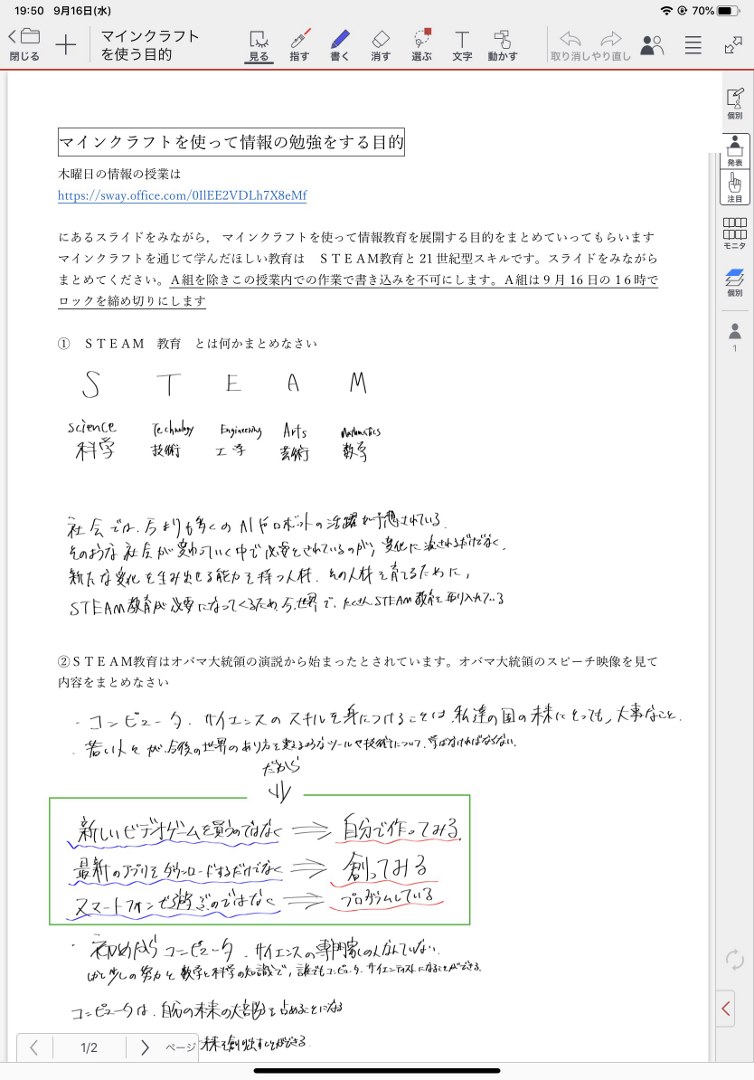 19:50 9月16日(水)
70%
閉じる
マインクラフト
を使う目的
見る
指す
書く
消す
選ぶ
文字
動かす
取り消し
やり直し
個別
発表
注目
モニタ
個別
1
マインクラフトを使って情報の勉強をする目的
木曜日の情報の授業は
https://sway.office.com/0IlEE2VDLh7X8eMf
にあるスライドをみながら, マインクラフトを使って情報教育を展開する目的をまとめていってもらいます
マインクラフトを通じて学んだほしい教育は STEAM教育と21世紀型スキルです。スライドをみながら
まとめてください。A組を除きこの授業内での作業で書き込みを不可にします。A組は9月16日の16時で
ロックを締め切りにします
① STEAM 教育 とは何かまとめなさい
S T E A M
science Technology Engineering Arts Mathematics
科学 技術 工学 芸術 数学
社会では、今よりも多くのAIやロボットの活躍が予想されている。
そのような社会が変わっていく中で必要とされているのが、変化に流されるだけでなく、
新たな変化を生み出せる能力を持つ人材、その人材を育てるために、
STEAM教育が必要になってくるため、今、世界で、たくさんSTEAM教育を取り入れている
②STEAM教育はオバマ大統領の演説から始まったとされています。オバマ大統領のスピーチ映像を見て
内容をまとめなさい
・コンピュータ、サイエンスのスキルを身につけることは、私達の国の未来にとっても、大事なこと。
・若い人々が、今後の世界のあり方を変えるようなツールや技術について、学ばなければならない。
だから
新しいビデオゲームを買うのではなく ⇒ 自分で作ってみる。
最新のアプリをダウンロードするだけでなく ⇒ 創ってみる
スマートフォンで遊ぶのではなく ⇒ プログラムしている
・初めからコンピュータ、サイエンスの専門家の人なんていない。
少しの努力と数学と科学の知識で、誰でもコンピュータ、サイエンティストになることができる。
コンピュータは、自分の未来の大部分を占めることになる
1/2
ページ